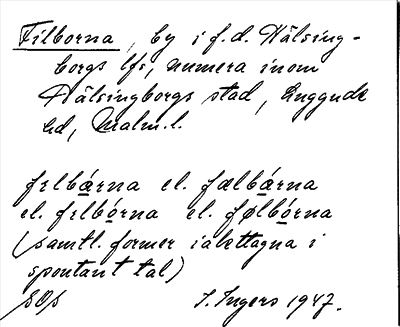 Filborna, by i f.d. Hälsing-
borgs lfs, numera inom
Hälsingborgs stad, Luggude
hd, Malm.l.
fɪlbárna el. fælbárna
el. fɪlbórna el. følbórna
(samtl. former iakttagna i
spontant tal)
SOſ S. Ingers 1947.